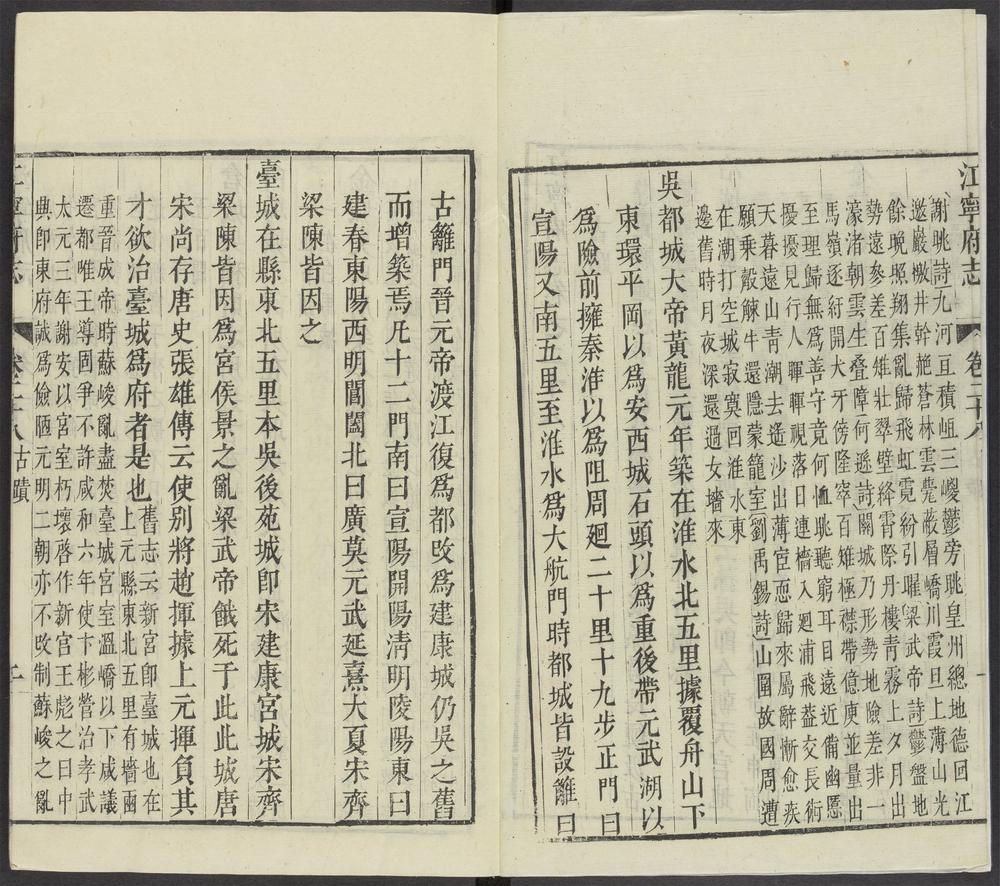 江寧府志 卷二十八
謝眺詩九河亘積岨三嵕鬱旁眺皇州總地德回江
邀巖檄井幹艳蒼林雲甍蔽層嶠川霞旦上薄山光
餘晚照翔集亂歸飛虹霓紛引曜梁武帝詩鬱盤地
勢遠參差百雉壯翠壁絳霄際丹樓青霧上夕月出
濠渚朝雲生叠障何遜詩關城乃形勢地險差非一
馬嶺逐紆開犬牙傍隆窣百雉極襟帶億庾並量出
至理歸無為善守竟何恤眺聽窮耳目遠近備幽悉
擾擾見行人暉暉視落日連檣入迴浦飛蓋交長術
天暮遠山青潮去遙沙出薄宦恧歸來屬辭慚愈疾
願乘觳觫牛還隱蒙籠室劉禹錫詩山圍故國周遭
在潮打空城寂寞回淮水東
邊舊時月夜深還過女墻來
吳都城大帝黃龍元年築在淮水北五里據覆舟山下
東環平岡以為安西城石頭以為重後帶元武湖以
為險前擁秦淮以為阻周廻二十里十九步正門曰
宣陽又南五里至淮水為大航門時都城皆設籬曰
古籬門晉元帝渡江復為都改為建康城仍吳之舊
而增築焉凡十二門南曰宣陽開陽清明陵陽東曰
建春東陽西明閶闔北曰廣莫元武延熹大夏宋齊
梁陳皆因之
臺城在縣東北五里本吳後苑城卽宋建康宮城宋齊
梁陳皆因為宮侯景之亂梁武帝餓死于此此城唐
宋尚存唐史張雄傳云使別將趙揮據上元揮負其
才欲治臺城為府者是也舊志云新宮卽臺城也在
上元縣東北五里有墻兩
重晉成帝時蘇峻亂盡焚臺城宮室溫嶠以下咸議
遷都唯王導固爭不許咸和六年使卞彬營治孝武
太元三年謝安以宮室朽壞啓作新宮王彪之曰中
興卽東府誠為儉陋元明二朝亦不改制蘇峻之亂
江寧府志 卷二十八 古蹟